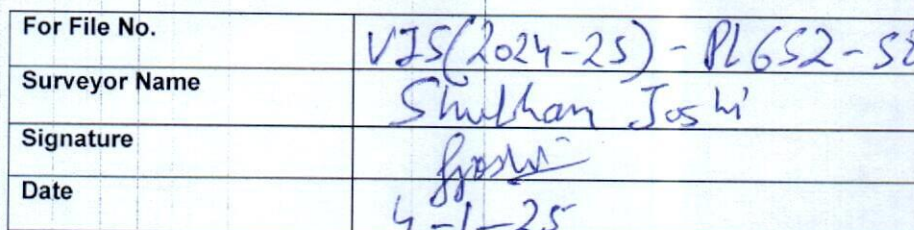 For File No. VIS(2024-25) - PL652-
Surveyor Name Shubham Joshi
Signature
Date 4-1-25